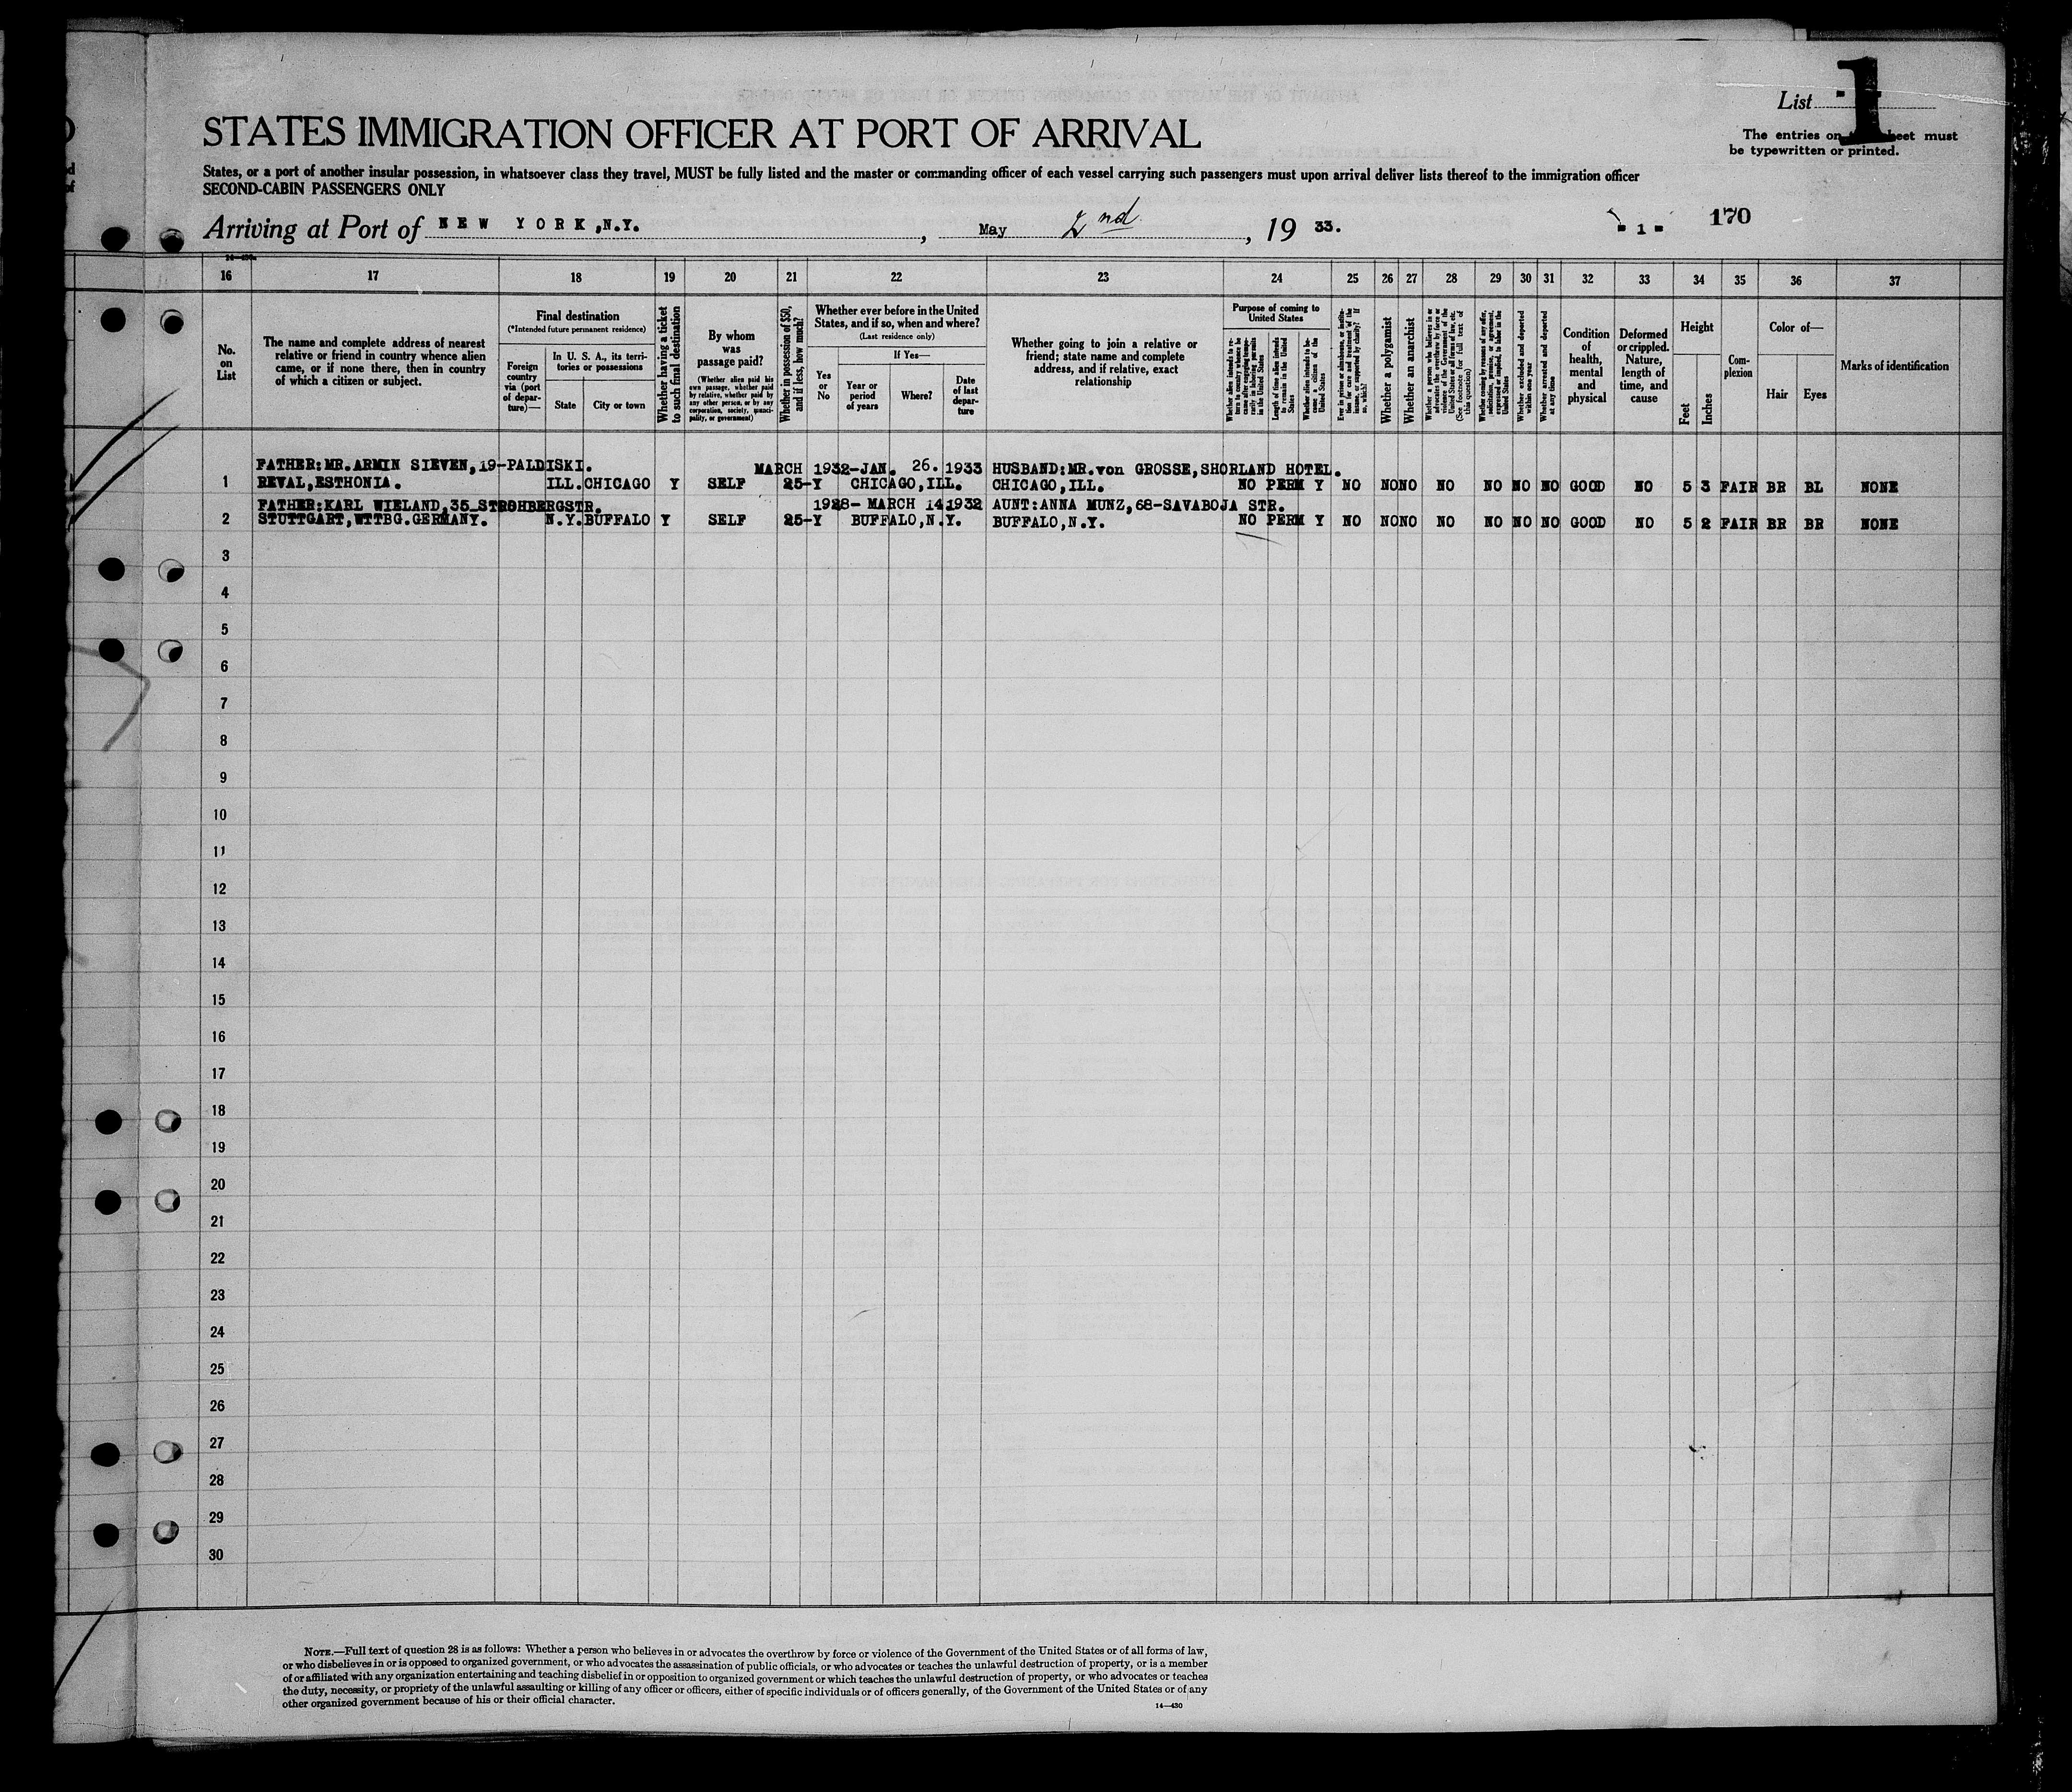 List 1
The entries on sheet must
be typewritten or printed.
STATES IMMIGRATION OFFICER AT PORT OF ARRIVAL
States, or a port of another insular possession, in whatsoever class they travel, MUST be fully listed and the master or commanding officer of each vessel carrying such passengers must upon arrival deliver lists thereof to the immigration officer
SECOND-CABIN PASSENGERS ONLY
Arriving at Port of NEW YORK, N.Y. , May 2nd , 19 33.
- 1 - 170
16 17 18 19 20 21 22 23 24 25 26 27 28 29 30 31 32 33 34 35 36 37
No. on List
The name and complete address of nearest relative or friend in country whence alien came, or if none there, then in country of which a citizen or subject.
Final destination
(*Intended future permanent residence)
Foreign country via (port of departure)—
In U. S. A., its territories or possessions
State
City or town
Whether having a ticket to such final destination
By whom was passage paid?
(Whether alien paid his own passage, whether paid by relative, whether paid by any other person, or by any corporation, society, municipality, or government)
Whether in possession of $50, and if less, how much?
Whether ever before in the United States, and if so, when and where?
(Last residence only)
Yes or No
If Yes—
Year or period of years
Where?
Date of last departure
Whether going to join a relative or friend; state name and complete address, and if relative, exact relationship
Purpose of coming to United States
Whether alien intends to return to country whence he came after engaging temporarily in laboring pursuits in the United States
Length of time alien intends to remain in the United States
Whether alien intends to become a citizen of the United States
Ever in prison or almshouse, or institution for care and treatment of the insane, or supported by charity? If so, which?
Whether a polygamist
Whether an anarchist
Whether a person who believes in or advocates the overthrow by force or violence of the Government of the United States or all forms of law, etc. (See footnote for full text of this question)
Whether coming by reason of any offer, solicitation, promise, or agreement, expressed or implied, to labor in the United States
Whether excluded and deported within one year
Whether arrested and deported at any time
Condition of health, mental and physical
Deformed or crippled. Nature, length of time, and cause
Height
Feet
Inches
Complexion
Color of—
Hair
Eyes
Marks of identification
FATHER:MR.ARMIN SIEVEN,19-PALDISKI. MARCH 1932-JAN. 26. 1933 HUSBAND:MR.von GROSSE,SHORLAND HOTEL.
1 REVAL,ESTHONIA. ILL. CHICAGO Y SELF 25-Y CHICAGO,ILL. CHICAGO,ILL. NO PERM Y NO NO NO NO NO NO NO GOOD NO 5 3 FAIR BR BL NONE
FATHER:KARL WIELAND,35 STROHBERGSTR. 1928- MARCH 14 1932 AUNT:ANNA MUNZ,68-SAVABOJA STR.
2 STUTTGART,WTTBG.GERMANY. N.Y. BUFFALO Y SELF 25-Y BUFFALO,N.Y. BUFFALO,N.Y. NO PERM Y NO NO NO NO NO NO NO GOOD NO 5 2 FAIR BR BR NONE
3
4
5
6
7
8
9
10
11
12
13
14
15
16
17
18
19
20
21
22
23
24
25
26
27
28
29
30
NOTE.—Full text of question 28 is as follows: Whether a person who believes in or advocates the overthrow by force or violence of the Government of the United States or of all forms of law,
or who disbelieves in or is opposed to organized government, or who advocates the assassination of public officials, or who advocates or teaches the unlawful destruction of property, or is a member
of or affiliated with any organization entertaining and teaching disbelief in or opposition to organized government or which teaches the unlawful destruction of property, or who advocates or teaches
the duty, necessity, or propriety of the unlawful assaulting or killing of any officer or officers, either of specific individuals or of officers generally, of the Government of the United States or of any
other organized government because of his or their official character.
14—430